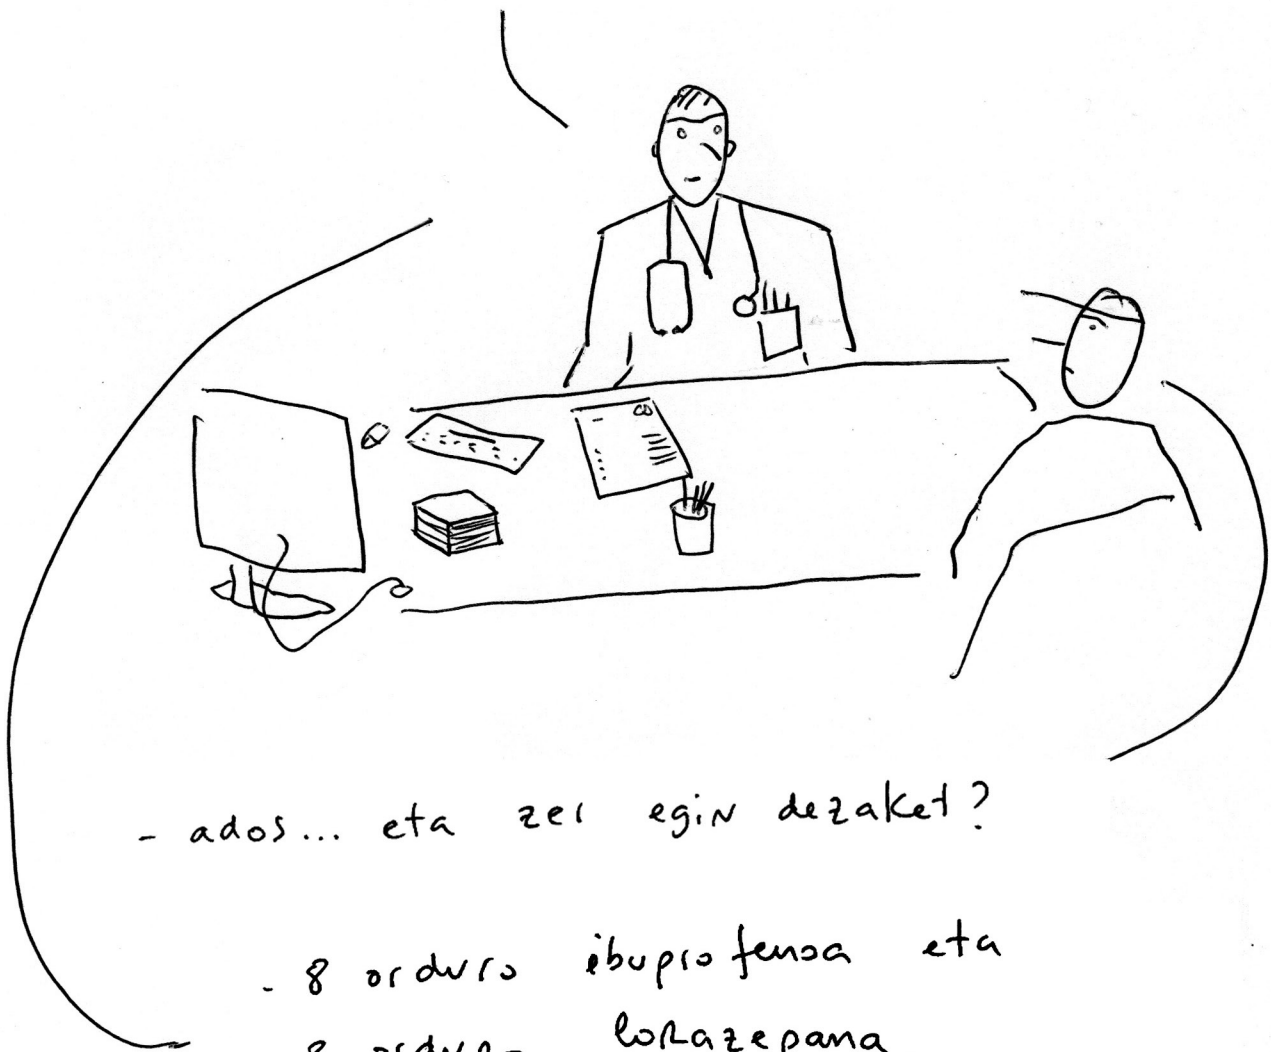 - ados... eta zer egin dezaket?
- 8 orduro ibuprofenoa eta
8 orduro lorazepana